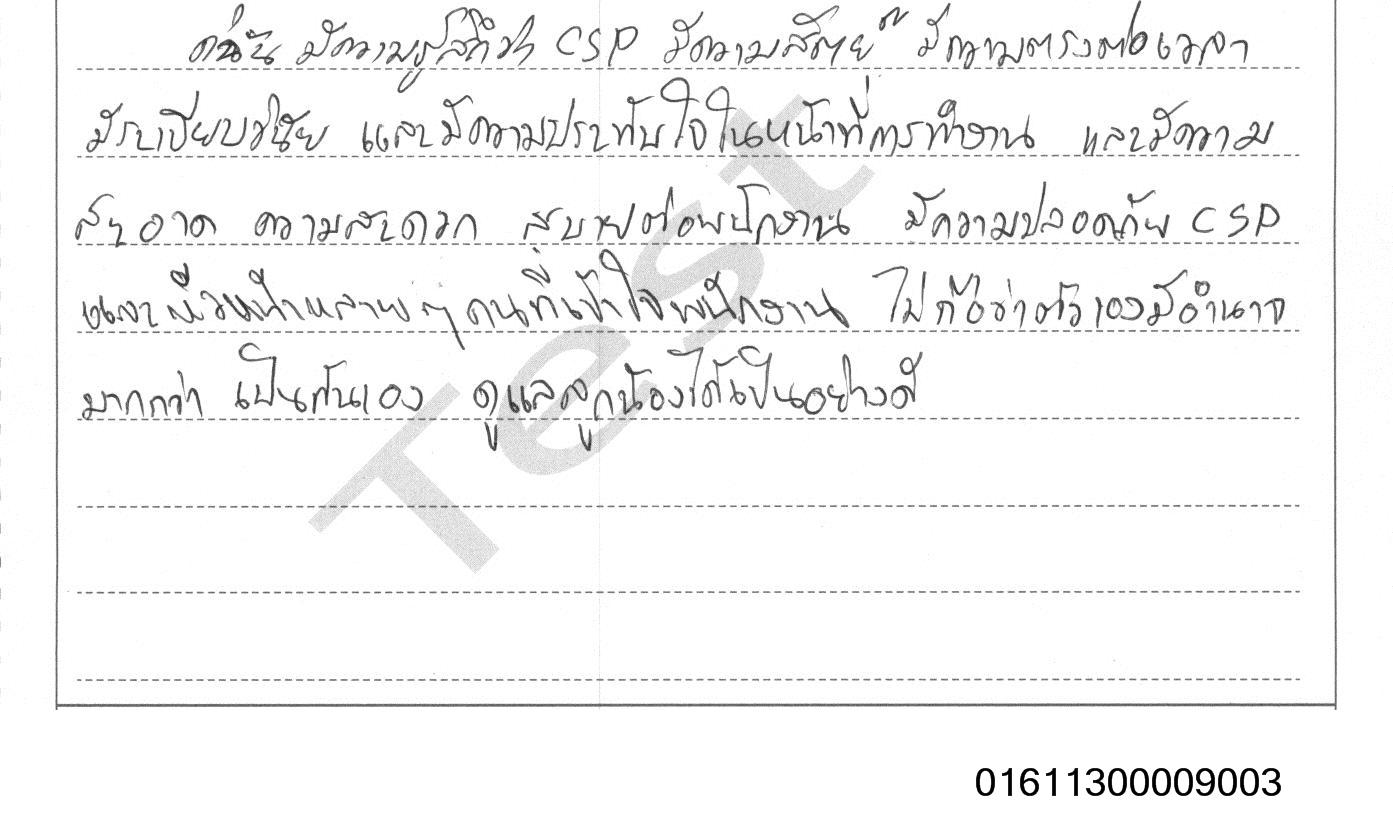 ดิฉัน มีความรู้สึกว่า CSP มีความสัตย์ มีความตรงต่อเวลา
มีระเบียบวินัย และมีความประทับใจในหน้าที่การทำงาน และมีความ
สะอาด ความสะดวก สบายต่อพนักงาน มีความปลอดภัย CSP
และหัวหน้าหลายๆ คนที่เข้าใจพนักงาน ไม่ถือว่าตัวเองมีอำนาจ
มากกว่า เป็นกันเอง ดูแลลูกน้องได้เป็นอย่างดี
Test
01611300009003